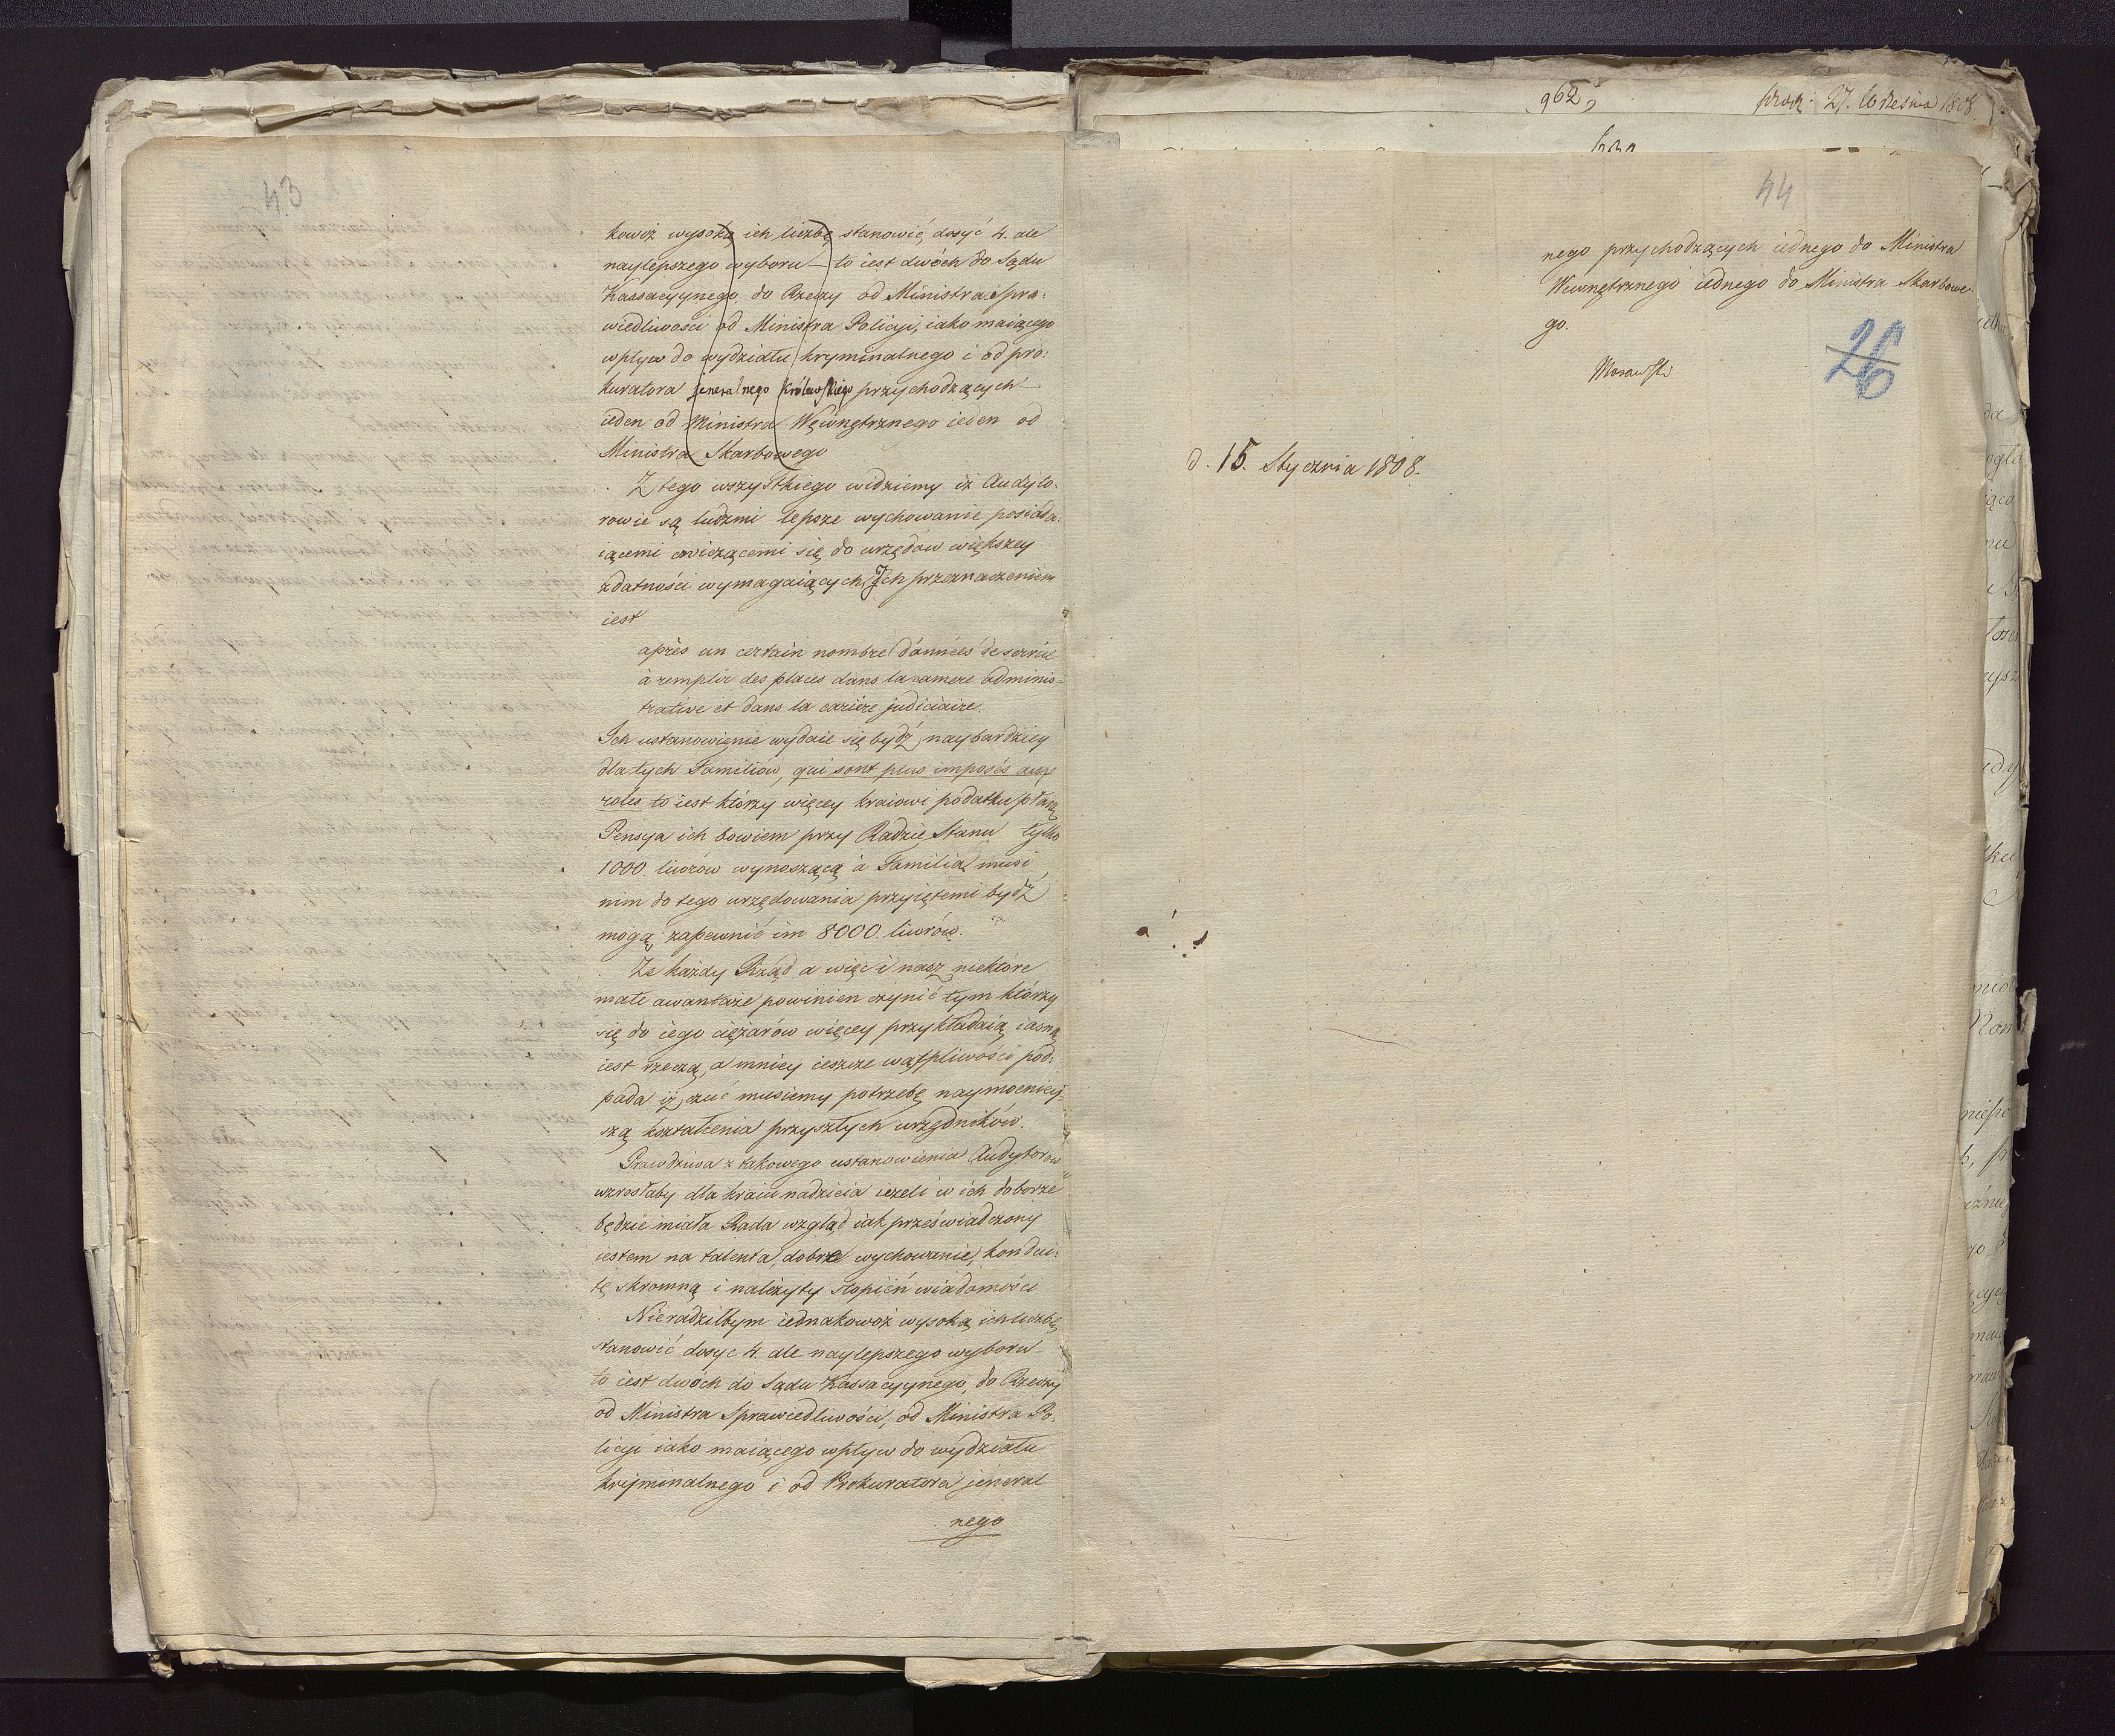 43
kowoż wysoką ich liczbę stanowić, dosyć 4. ale
naylepszego wyboru – to iest dwóch do Sądu
Kassacyynego, do Rzeczy od Ministra Spra:
wiedliwosci od Ministra Policyi, iako maiącego
wpływ do wydziału kryminalnego i od pro:
kuratora jeneralnego Królewskiego przychodzących
ieden od Ministra Węwnętrznego ieden od
Ministra Skarbowego
Z tego wszystkiego widziemy iż Audyto:
rowie są ludzmi lepsze wychowanie posiada:
iącemi cwiczącemi się do urzędow większey
zdatności wymagaiących. Ich przeznaczeniem
iest
après un certain nombre d'années de service
à remplir des places dans la cariere adminis=
trative et dans la carière judiciaire.
Ich ustanowienie wydaie się bydź naybardziey
dla tych Familiow, qui sont plus imposés aux
roles to iest którzy więcey kraiowi podatku płacą
Pensya ich bowiem przy Radzie Stanu tylko
1000. liwrów wynoszącą a Familia musi
nim do tego urzędowania przyiętemi bydź
mogą zapewnić im 8000. liwrów.
Ze każdy Rząd a więc i nasz niektóre
małe awantaże powinien czynić tym którzy
się do iego ciężarów więcey przykładaią iasną
iest rzeczą, a mniey ieszcze wątpliwości pod:
pada iż czuć musiemy potrzebę naymocniey:
szą kształcenia przyszłych urzędników.
Prawdziwa z takowego ustanowienia Audytorow
wzrosłaby dla kraiu nadzieia ieżeli w ich doborze
będzie miała Rada wzgląd iak przeświadczony
iestem na talenta, dobre wychowanie, kondui:
tę skromną i należyty stopień wiadomości
Nieradziłbym iednakowoż wysoką ich liczbę
stanowić dosyc 4. ale naylepszego wyboru
to iest dwóch do Sądu Kassacyynego, do Rzeczy
od Ministra Sprawiedliwości, od Ministra Po:
licyi iako maiącego wpływ do wydziału
kryminalnego i od Prokuratora jeneral
nego
962
27. Września 1808
44
nego przychodzących iednego do Ministra
Wewnętrznego iednego do Ministra Skarbowe:
go.
26
Morawski
d. 15. Stycznia 1808.